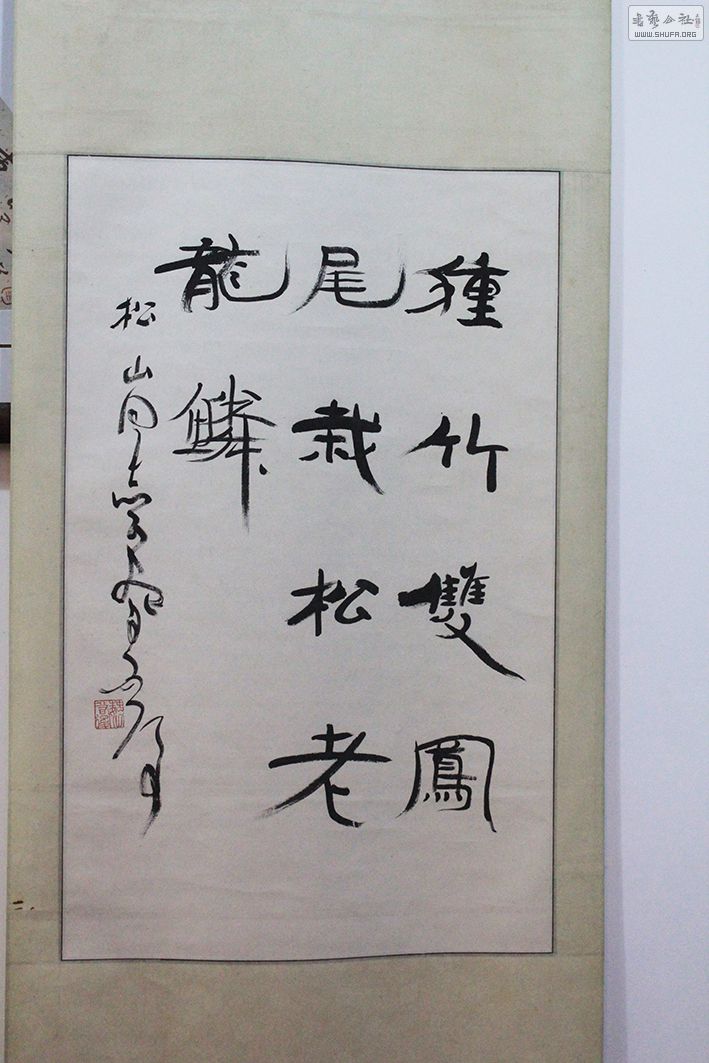 種竹雙鳳
尾栽松老
龍鱗
松山
書藝公社
WWW.SHUFA.ORG